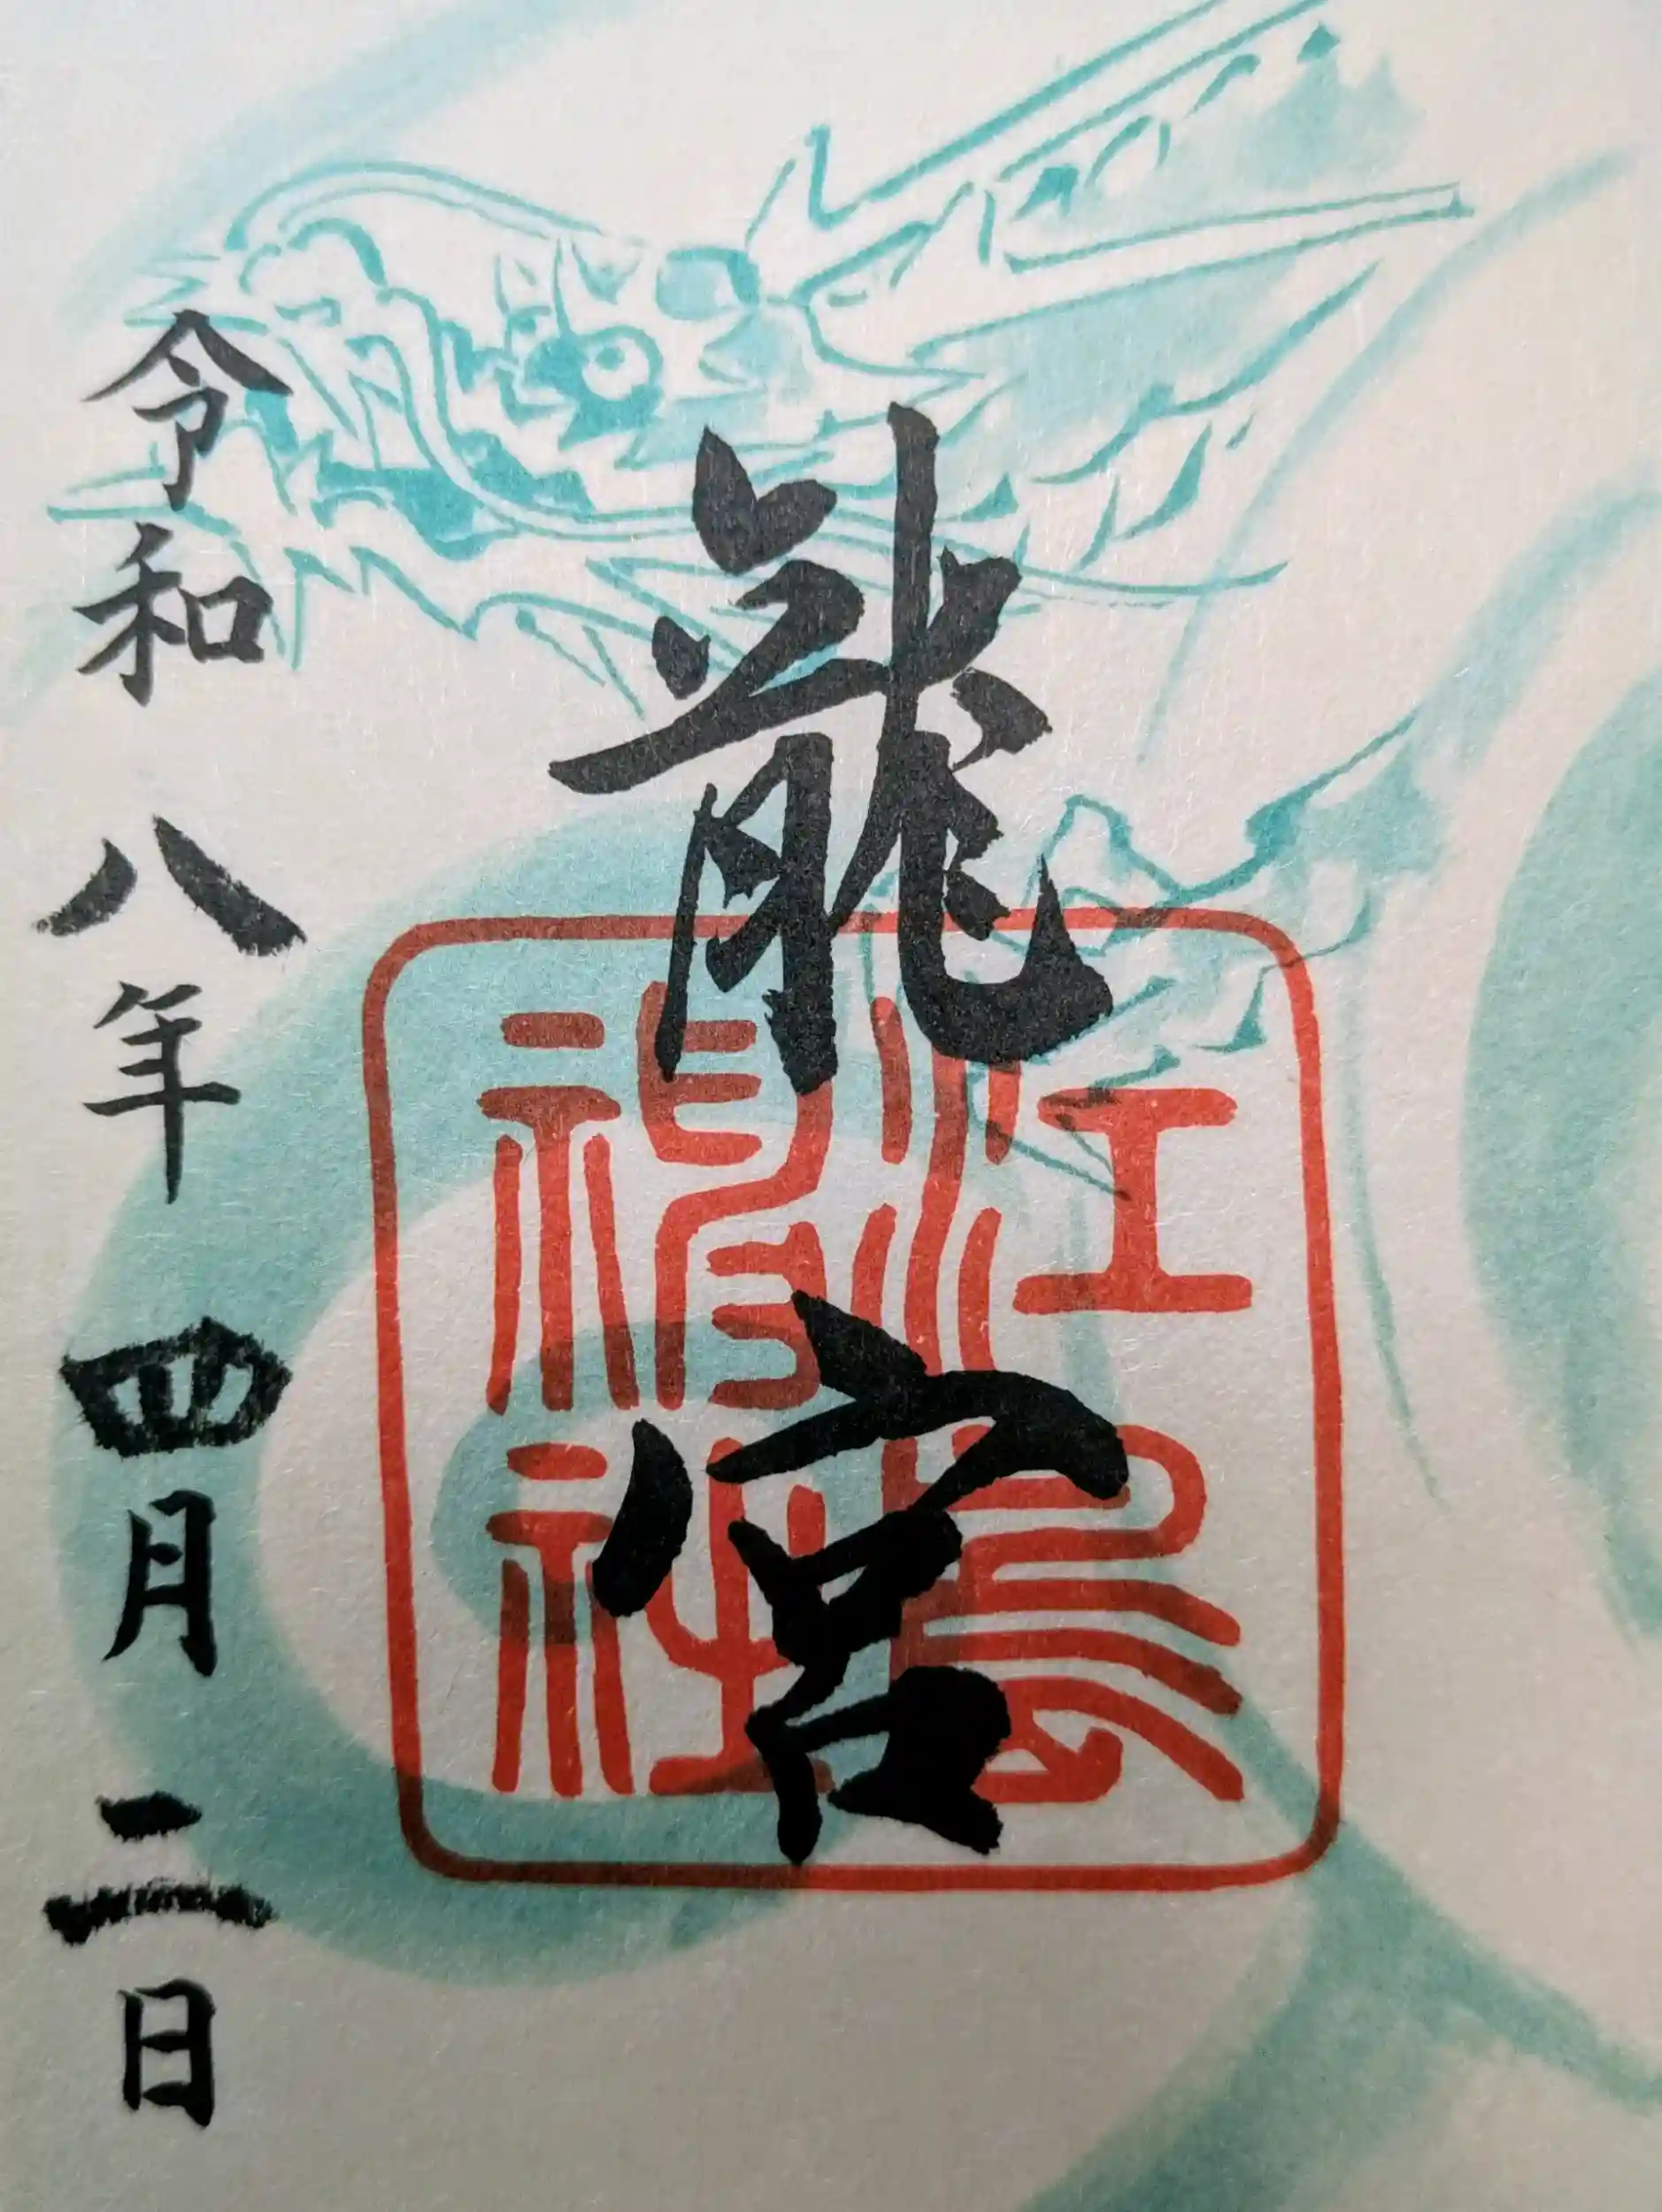 龍宮
江島神社
令和八年四月二日